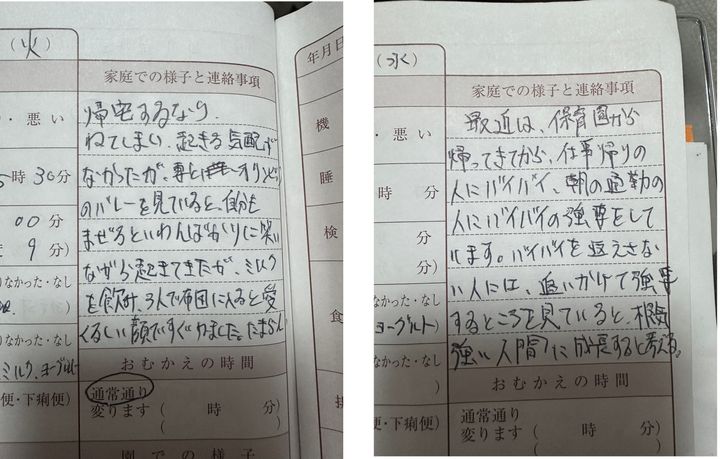 (火)
家庭での様子と連絡事項
・悪い
帰宅するなり、
ねてしまい、起きる気配が
時30分
なかったが、妻とオリンピック
のバレーを見ていると、自分も
00分
9分)
まぜろといわんばかりに笑い
ながら起きてきたが、ミルク
なかった・なし
を飲み、3人で布団に入ると愛
くるしい顔ですぐねました。たまらん
なかった・なし
ミルク、ヨーグルト
おむかえの時間
便・下痢便)
通常通り
変ります
( 時 分)
( )
園での様子
年月日
機
睡
検
食
排
(水)
家庭での様子と連絡事項
・悪い
最近は、保育園から
帰ってきてから、仕事帰りの
時 分
人にバイバイ、朝の通勤の
人にバイバイの強要をして
分
います。バイバイを返えさな
分)
い人には、追いかけて強要
なかった・なし
ヨーグルト)
するところを見ていると、根気
強い人間に成長すると考える。
なかった・なし
)
おむかえの時間
便・下痢便)
通常通り
変ります
( 時 分)
( )